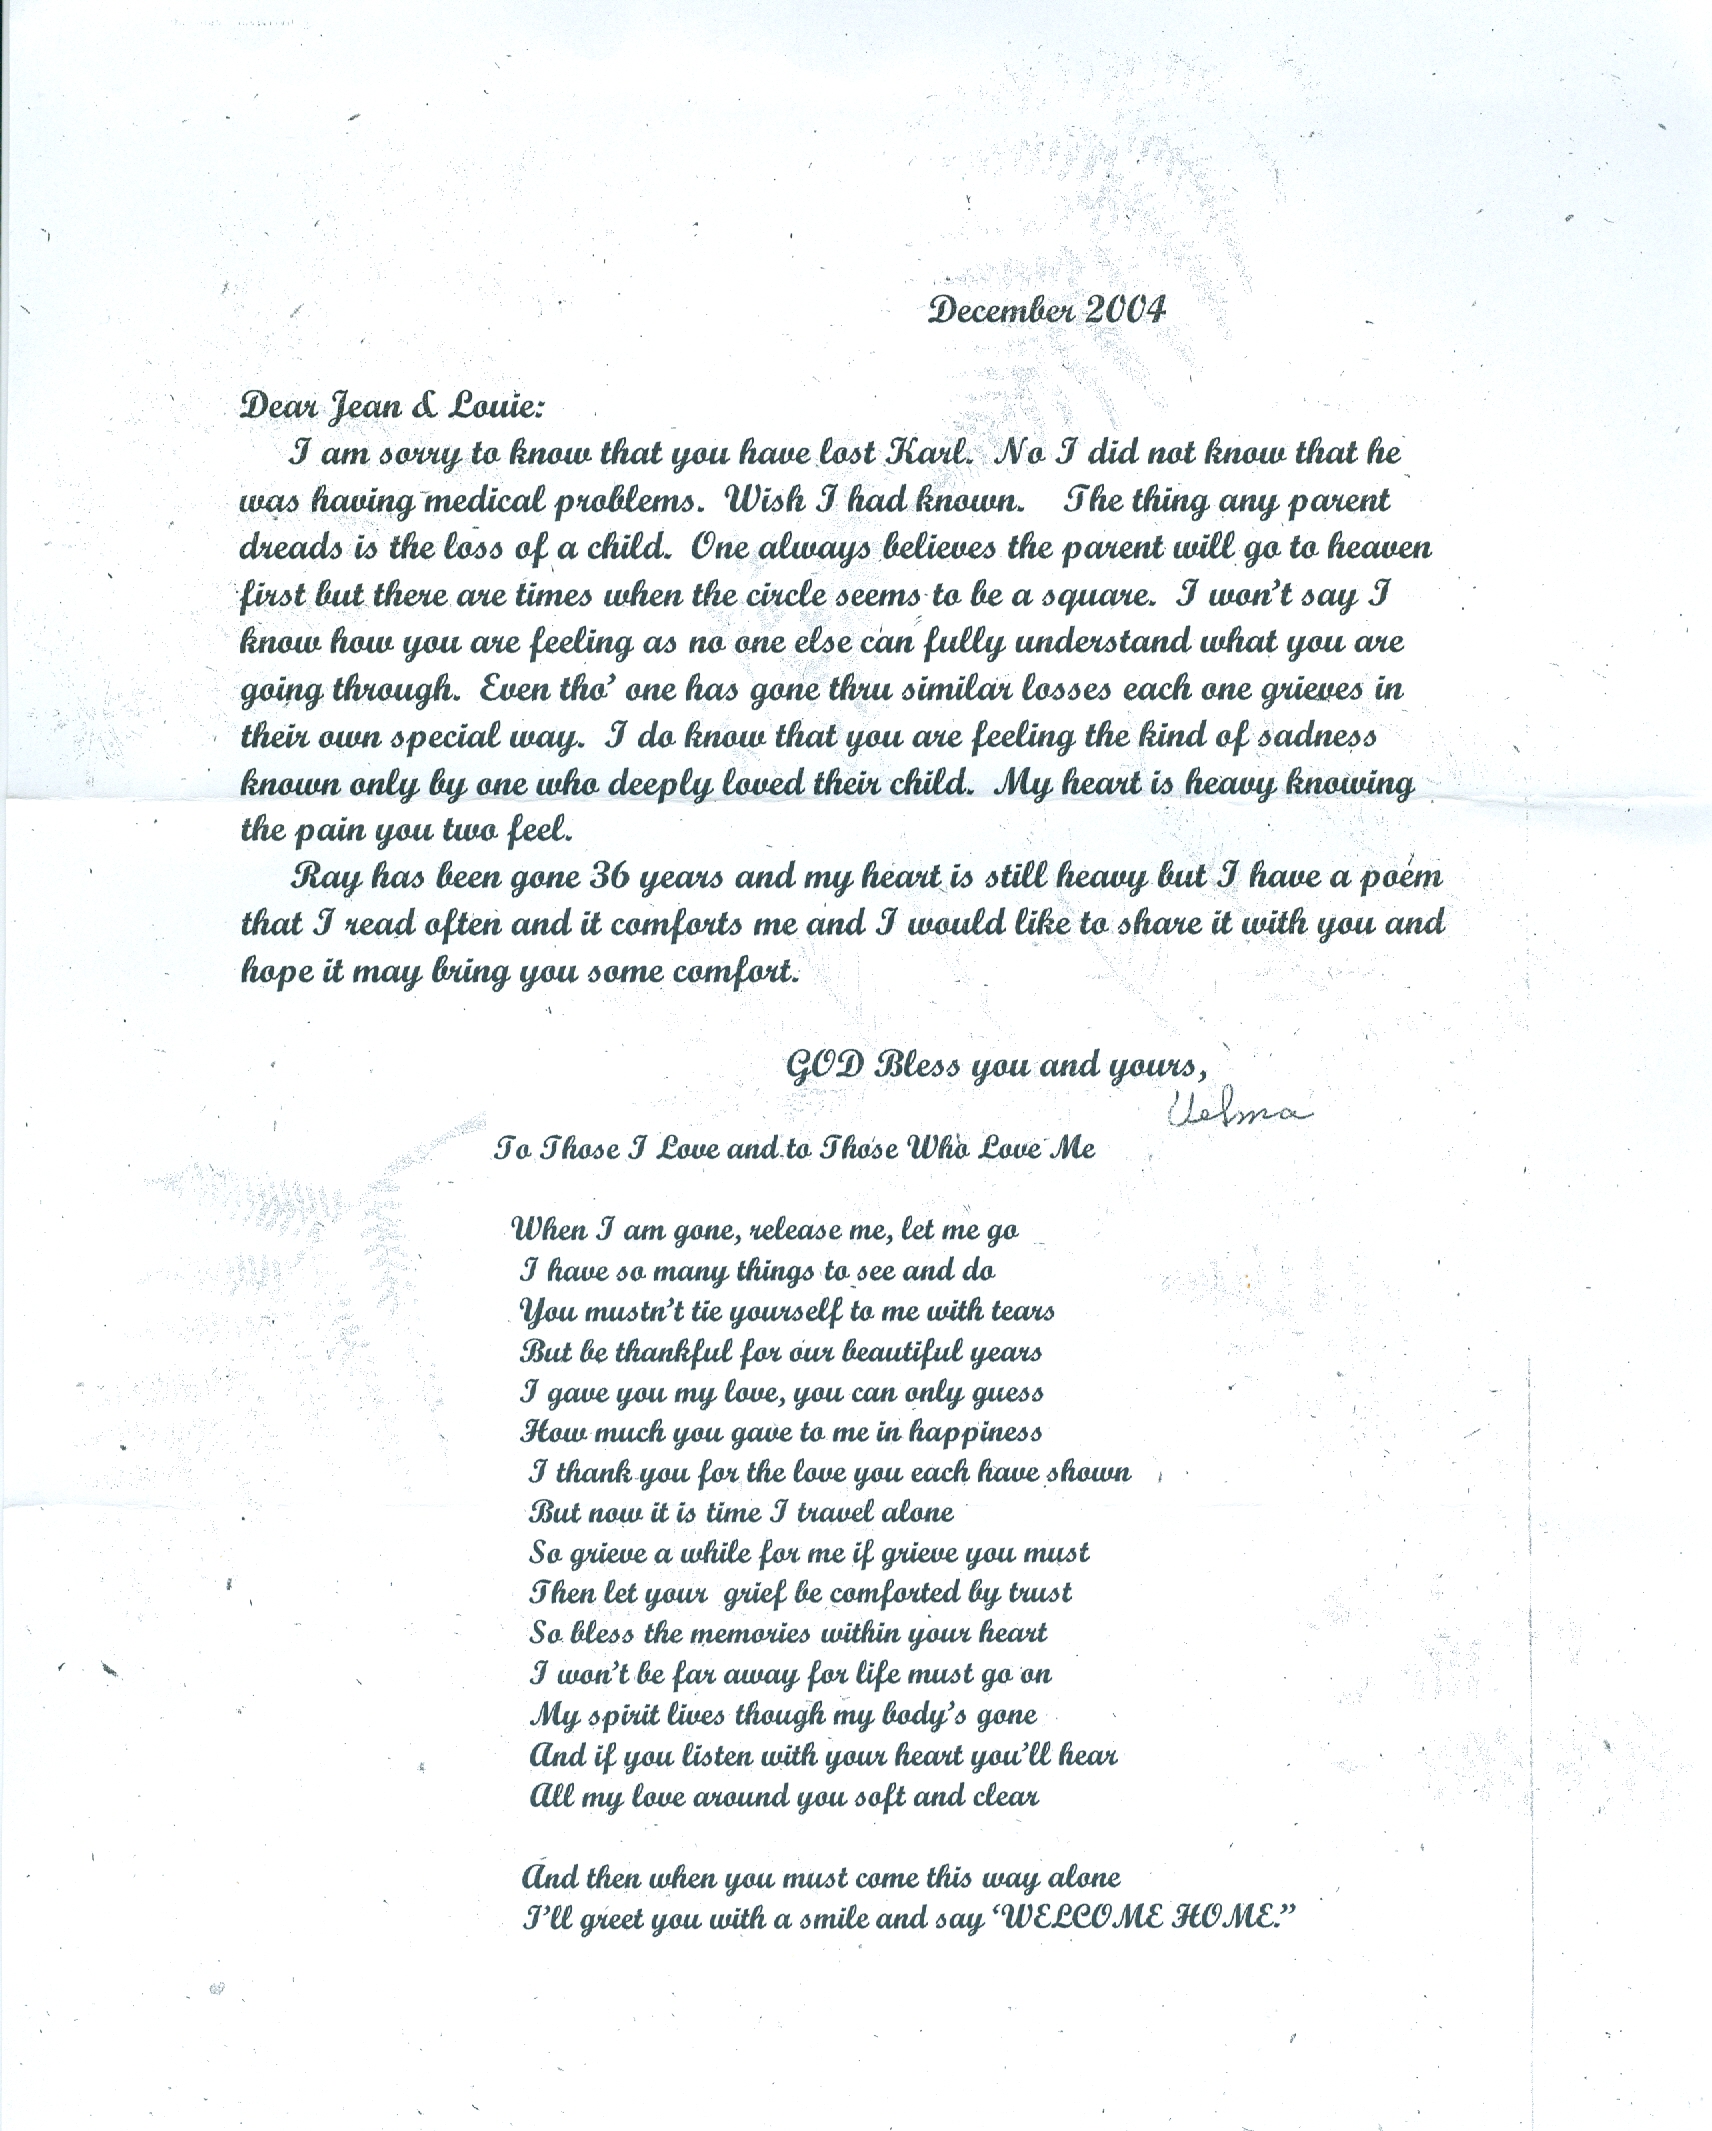 December 2004
Dear Jean & Louie:
I am sorry to know that you have lost Karl. No I did not know that he
was having medical problems. Wish I had known. The thing any parent
dreads is the loss of a child. One always believes the parent will go to heaven
first but there are times when the circle seems to be a square. I won't say I
know how you are feeling as no one else can fully understand what you are
going through. Even tho' one has gone thru similar losses each one grieves in
their own special way. I do know that you are feeling the kind of sadness
known only by one who deeply loved their child. My heart is heavy knowing
the pain you two feel.
Ray has been gone 36 years and my heart is still heavy but I have a poem
that I read often and it comforts me and I would like to share it with you and
hope it may bring you some comfort.
GOD Bless you and yours,
Velma
To Those I Love and to Those Who Love Me
When I am gone, release me, let me go
I have so many things to see and do
You mustn't tie yourself to me with tears
But be thankful for our beautiful years
I gave you my love, you can only guess
How much you gave to me in happiness
I thank you for the love you each have shown
But now it is time I travel alone
So grieve a while for me if grieve you must
Then let your grief be comforted by trust
So bless the memories within your heart
I won't be far away for life must go on
My spirit lives though my body's gone
And if you listen with your heart you'll hear
All my love around you soft and clear
And then when you must come this way alone
I'll greet you with a smile and say 'WELCOME HOME."